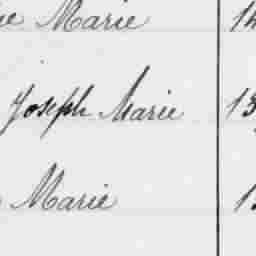 Marie 14
Joseph Marie 13
Marie